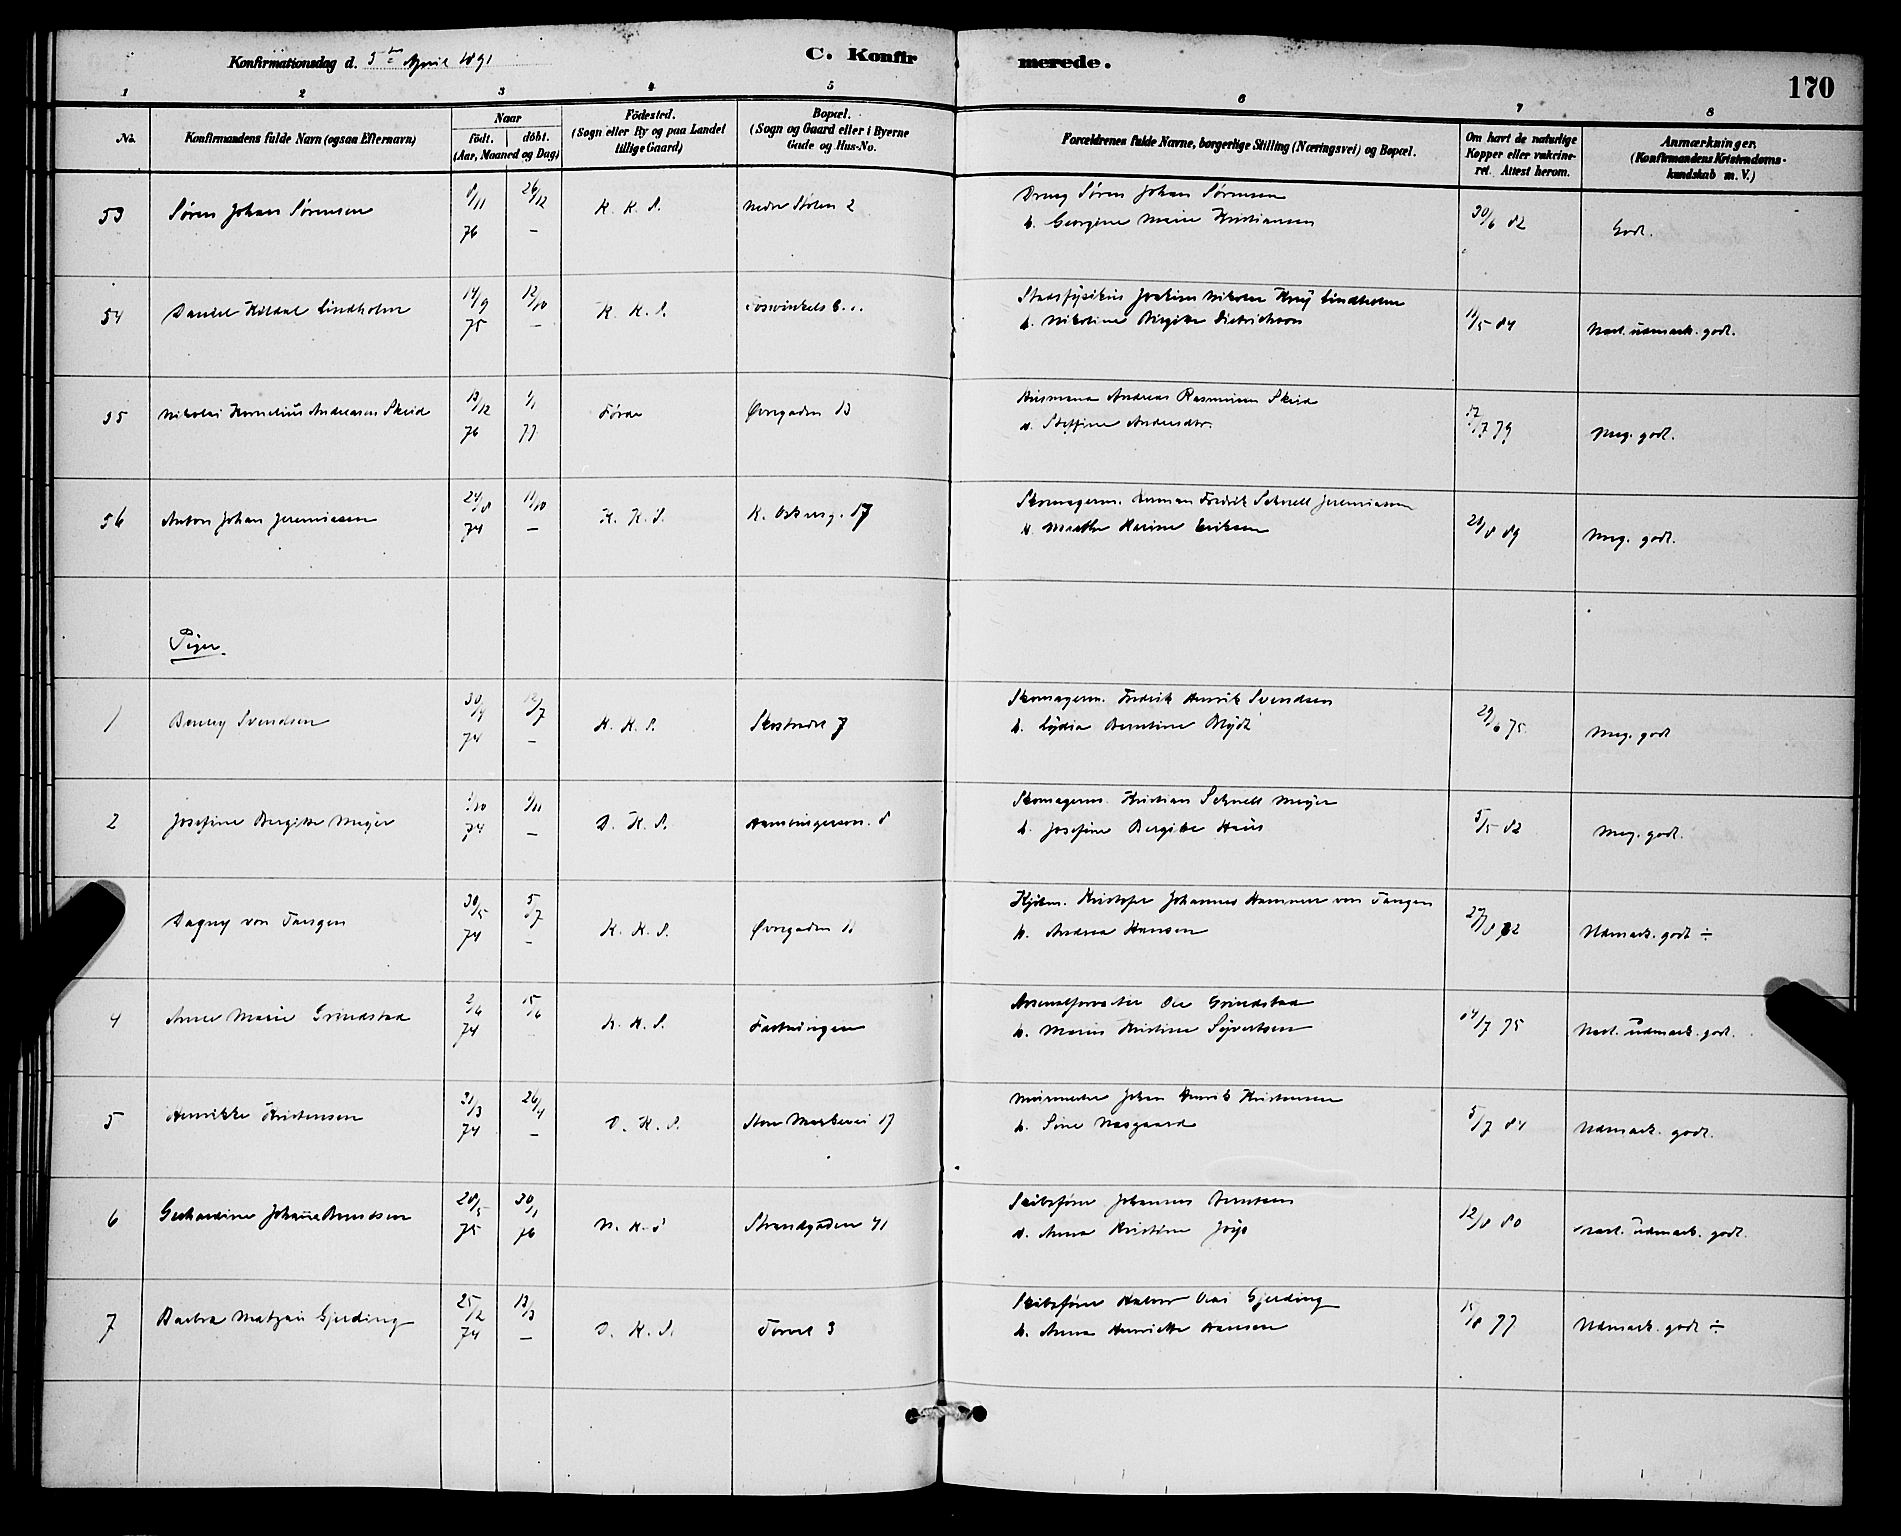 Konfirmationsdag d. 5te April 1891
C. Konfirmerede.
170
1 2 3 4 5 6 7 8
No.
Konfirmandens fulde Navn (ogsaa Efternavn)
Naar
födt. döbt.
(Aar, Maaned og Dag)
Födested.
(Sogn eller By og paa Landet
tillige Gaard)
Bopæl.
(Sogn og Gaard eller i Byerne
Gade og Hus-No.
Forældrenes fulde Navne, borgerlige Stilling (Næringsvei) og Bopæl.
Om havt de naturlige
Kopper eller vakcine-
ret. Attest herom.
Anmærkninger.
(Konfirmandens Kristendoms-
kundskab m. V.)
53 Søren Johan Sørensen 8/11 76 26/12 — K. K. S. Nedre Stolen 2
Søren Johan Sørensen
h. Georgine Marie Kristiansen 30/6 82 Godt.
54 Daniel Kildal Lindholm 14/9 75 12/10 — K. K. S.
Stadsfysikus Joakim Nikolai Krüj Lindholm
h. Nikoline Birgitte Dietrichson 11/5 84 Næst. udmærk. godt.
55 Nikolai Kornelius Andreasen Skeid 13/12 76 1/1 77 Førde Øvregaden 13
Husmand Andreas Rasmussen Skeid
d. Steffine Andersdtr. 79 Meg. godt.
56 Anton Johan Jeremiassen 24/8 74 11/10 — K. K. S. K. Oskarsg. 17
Skomagerm. Herman Fredrik Schnell Jeremiassen
h. Marthe Karine Eriksen 28/8 89 Meg. godt.
Piger.
1 Benny Svendsen 30/4 74 12/7 — K. K. S. Skostrædet 7
Skomagerm. Fredrik Henrik Svendsen
h. Lydia Berntine Blydt 29/6 75 Meg. godt
2 Josefine Bergitte Meyer 74 — D. K. S. 8
Skomagerm. Kristian Schnell Meyer
h. Josefine Bergitte Haus 5/5 82 Meg. godt.
Dagny von Tangen 30/5 74 5/7 — K. K. S. Øvregaden
Kjøbm. Kristofer Johannes Hammer von Tangen
h. Andrea Hansen 27/8 82 Udmærk. godt ÷
4 Anne Marie Grindstad 2/6 74 15/6 K. K. S. Fæstningen
Arsenalforvalter Ole Grindstad
h. Marie Kristine Syvertsen 14/7 75 Næst. udmærk. godt.
5 Henrikke Kristensen 31/3 74 26/4 — D. K. S. Store Markevei 17
Murmester Johan Henrik Kristensen
h. Sine Næsgaard 5/7 84 Udmærk. godt.
6 Gerhardine Johanne Berntsen 28/5 75 30/1 76 N. K. S Strandgaden 41
Skibsfører Johannes Berntsen
h. Anna Kristine 12/8 80 Næst. udmærk. godt.
7 Barbra Matzau Gjerding 25/2 74 13/3 — D. K. S. Torvet 3
Skibsfører Halvor Gjerding
h. Anna Henriette Hansen 15/8 77 Udmærk. godt ÷